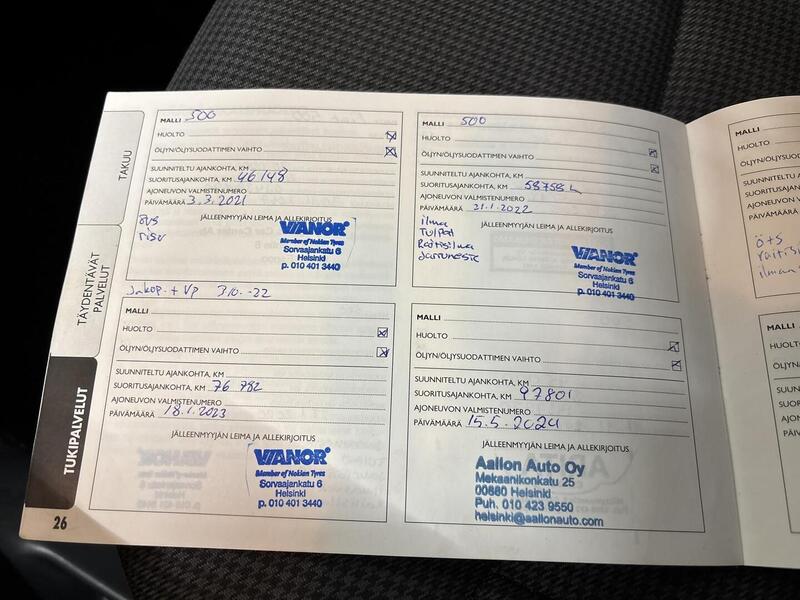 TAKUU
TÄYDENTÄVÄT
PALVELUT
TUKIPALVELUT
26
MALLI 500
HUOLTO
ÖLJYN/ÖLJYSUODATTIMEN VAIHTO
SUUNNITELTU AJANKOHTA, KM
SUORITUSAJANKOHTA, KM 46148
AJONEUVON VALMISTENUMERO
PÄIVÄMÄÄRÄ 3.3.2021
JÄLLEENMYYJÄN LEIMA JA ALLEKIRJOITUS
VIANOR
Member of Nokian Tyres
Sorvaajankatu 6
Helsinki
p. 010 401 3440
MALLI 500
HUOLTO
ÖLJYN/ÖLJYSUODATTIMEN VAIHTO
SUUNNITELTU AJANKOHTA, KM
SUORITUSAJANKOHTA, KM 58758
AJONEUVON VALMISTENUMERO
PÄIVÄMÄÄRÄ 21.1.2022
JÄLLEENMYYJÄN LEIMA JA ALLEKIRJOITUS
ilma
Tulpat
Raitisilma
Jarruneste
VIANOR
Member of Nokian Tyres
Sorvaajankatu 6
Helsinki
p. 010 401 3440
Jakop. + Vp 3.10.-22
MALLI
HUOLTO
ÖLJYN/ÖLJYSUODATTIMEN VAIHTO
SUUNNITELTU AJANKOHTA, KM
SUORITUSAJANKOHTA, KM 76 782
AJONEUVON VALMISTENUMERO
PÄIVÄMÄÄRÄ 18.1.2023
JÄLLEENMYYJÄN LEIMA JA ALLEKIRJOITUS
VIANOR
Member of Nokian Tyres
Sorvaajankatu 6
Helsinki
p. 010 401 3440
MALLI
HUOLTO
ÖLJYN/ÖLJYSUODATTIMEN VAIHTO
SUUNNITELTU AJANKOHTA, KM
SUORITUSAJANKOHTA, KM 97801
AJONEUVON VALMISTENUMERO
PÄIVÄMÄÄRÄ 15.5.2024
JÄLLEENMYYJÄN LEIMA JA ALLEKIRJOITUS
Aallon Auto Oy
Mekaanikonkatu 25
00880 Helsinki
Puh. 010 423 9550
helsinki@aallonauto.com
MALLI
HUOLTO
ÖLJYN/ÖLJYSUO
SUUNNITELTU A
SUORITUSAJANK
AJONEUVON VAL
PÄIVÄMÄÄRÄ
öts
raitis
ilman
MALLI
HUOLTO
ÖLJYN/ÖL
SUUNNITE
SUORITU
AJONEU
PÄIVÄM